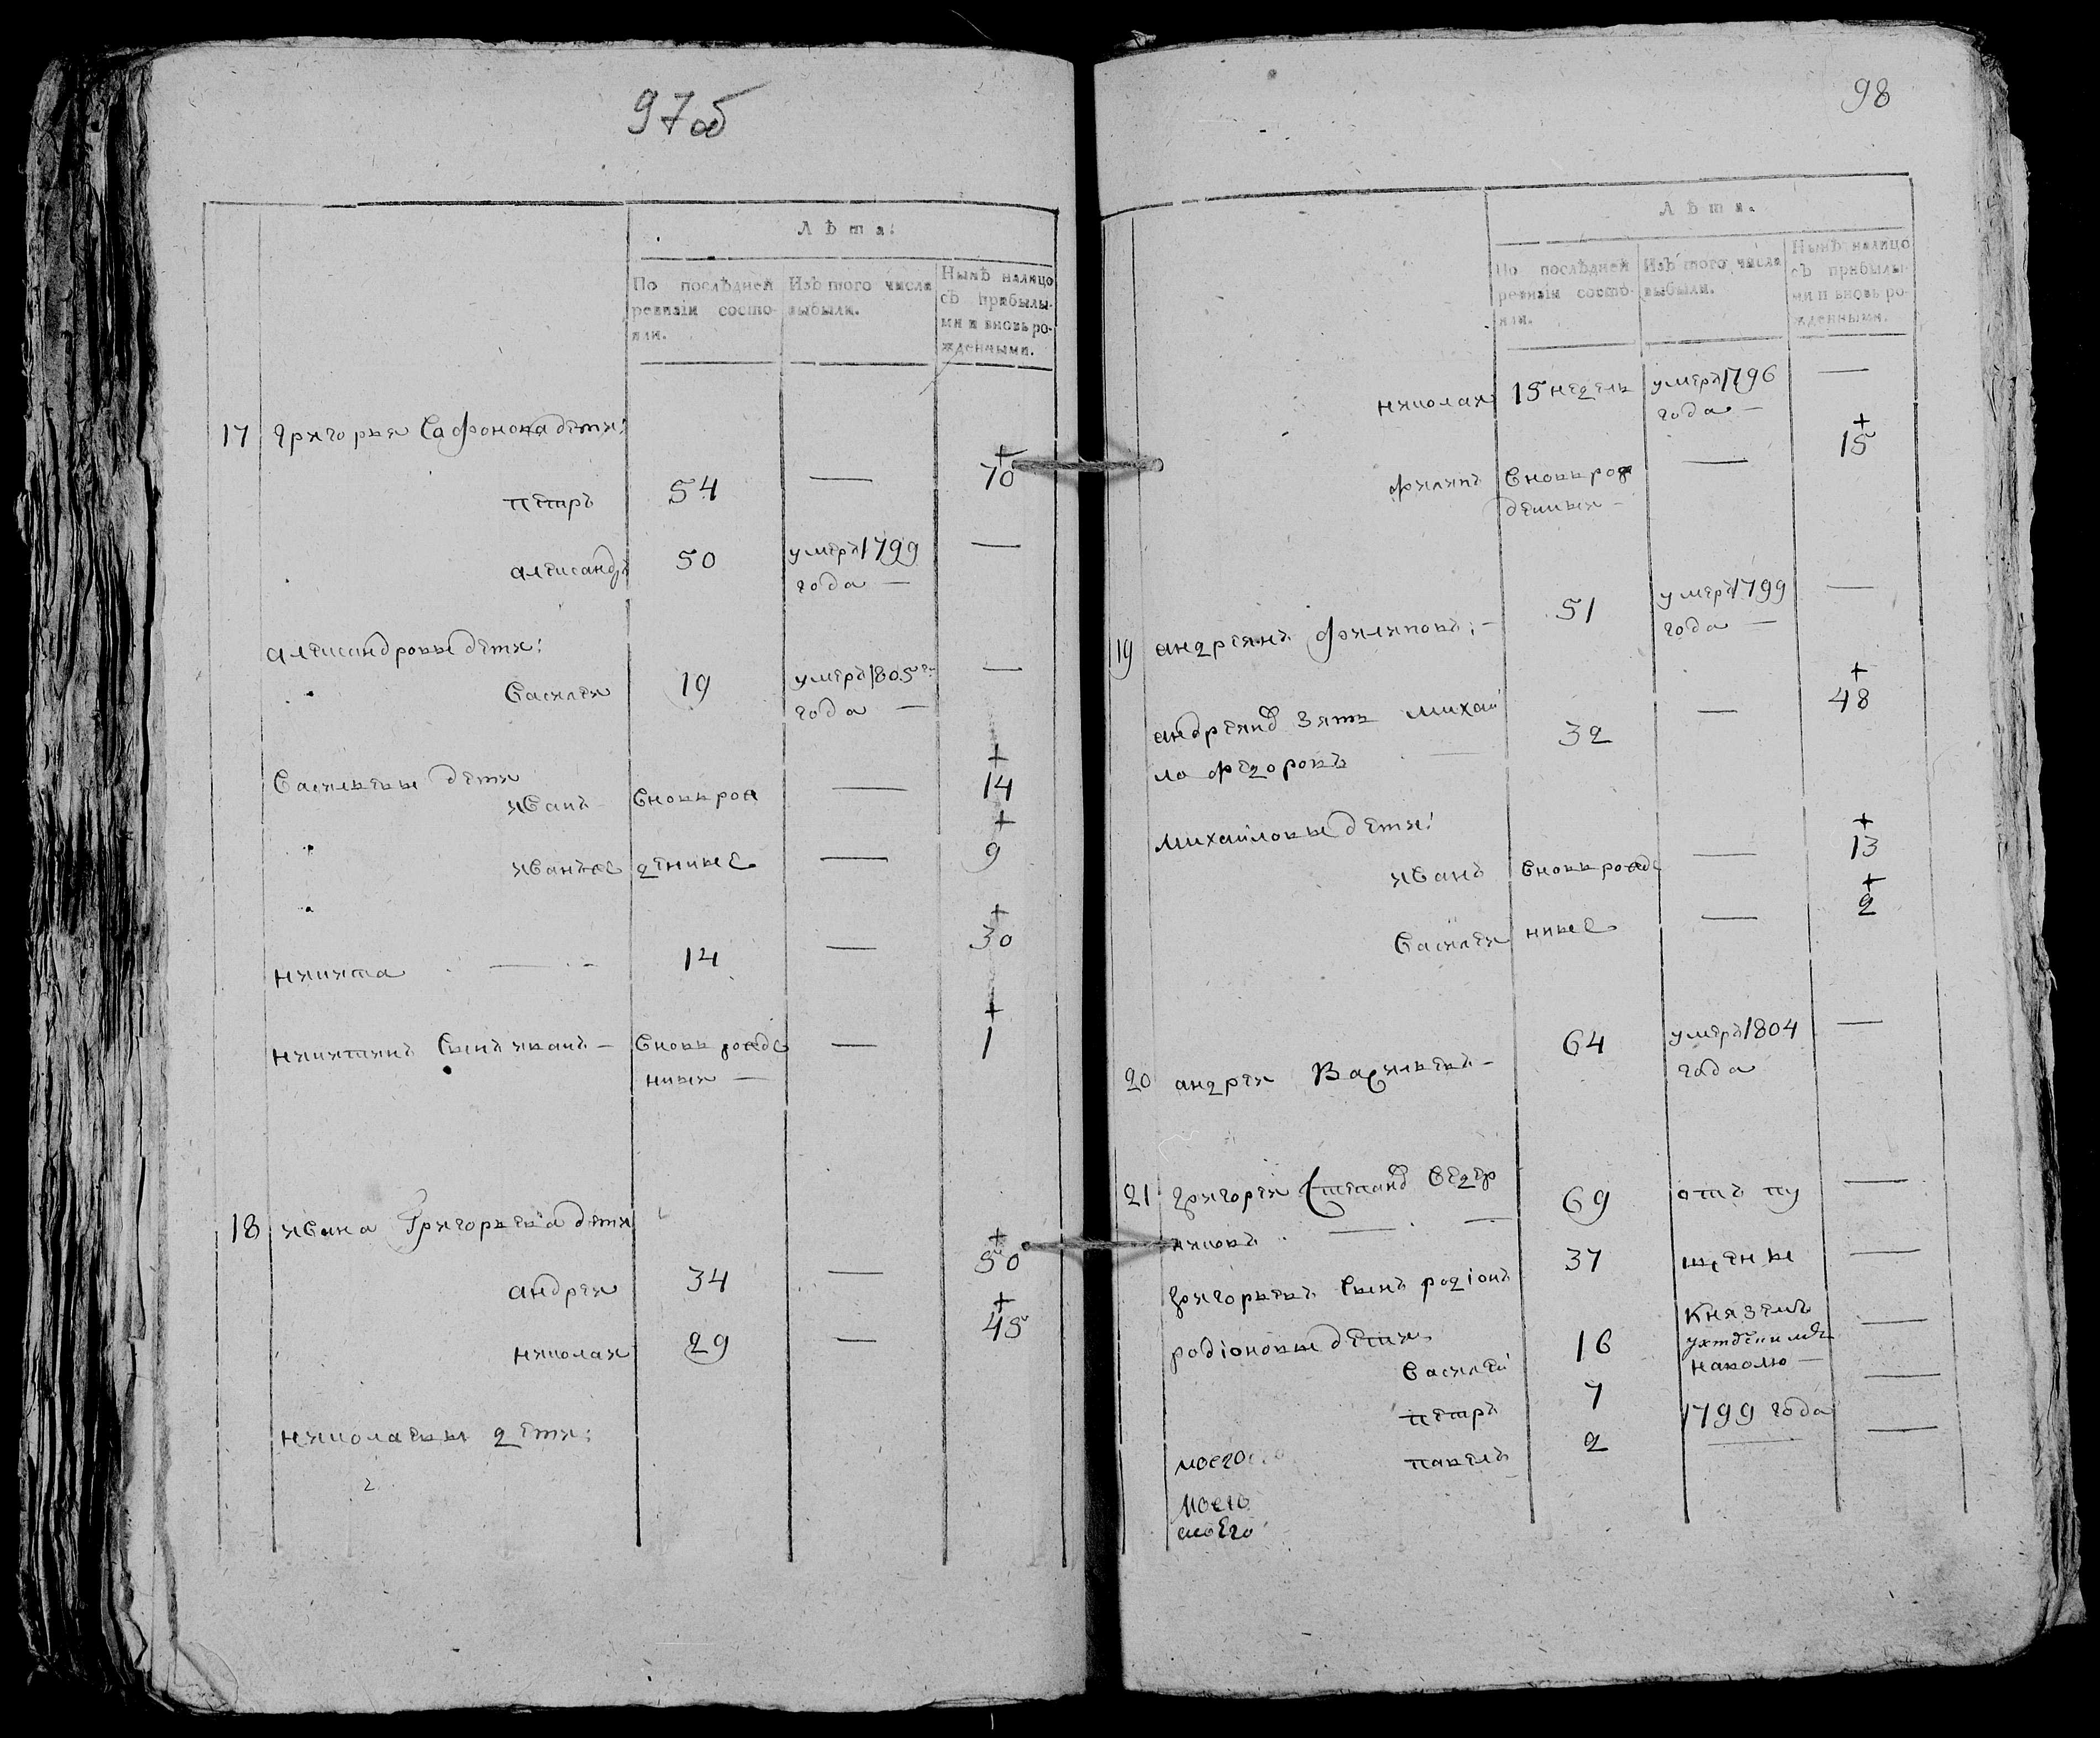 97об
Лѣта.
По послѣдней ревизіи состояли.
Изъ того числа выбыли.
Нынѣ налицо съ прибылыми и вновь рожденными.
17 григорья Сафонова дети:
петръ 54 — 70
александръ 50 умеръ 1799
года —
александровы дети:
василеи 19 умеръ 1805го —
года —
васильевы дети
иванъ вновь рож — 14
иванже денные — 9
никита — 14 — 30
никитинъ сынъ иванъ — вновь рожде — 1
ныи —
18 ивана Григорьева дети
андреи 34 — 50
николаи 29 — 45
николаевы дети:
98
Лѣта.
По послѣдней ревизіи состояли.
Изъ того числа выбыли.
Нынѣ налицо съ прибылыми и вновь рожденными.
николаи 15 недель умеръ 1796 —
года —
филипъ вновь рож — 15
денныи —
19 андреянъ филиповъ: — 51 умеръ 1799 —
года —
андреянов зять михаи 32 — 48
ло федоровъ —
михаиловы дети:
иванъ вновь рожде — 13
василеи нные — 2
20 андреи Васильевъ — 64 умеръ 1804 —
года
21 григореи Степанов 69 отъ пу —
григорьевъ сынъ родіонъ 37 щенны —
княземъ
родіоновы дети
василей 16 —
наволю —
петръ 7 1799 года —
павелъ 2 —
моего
моего
моего